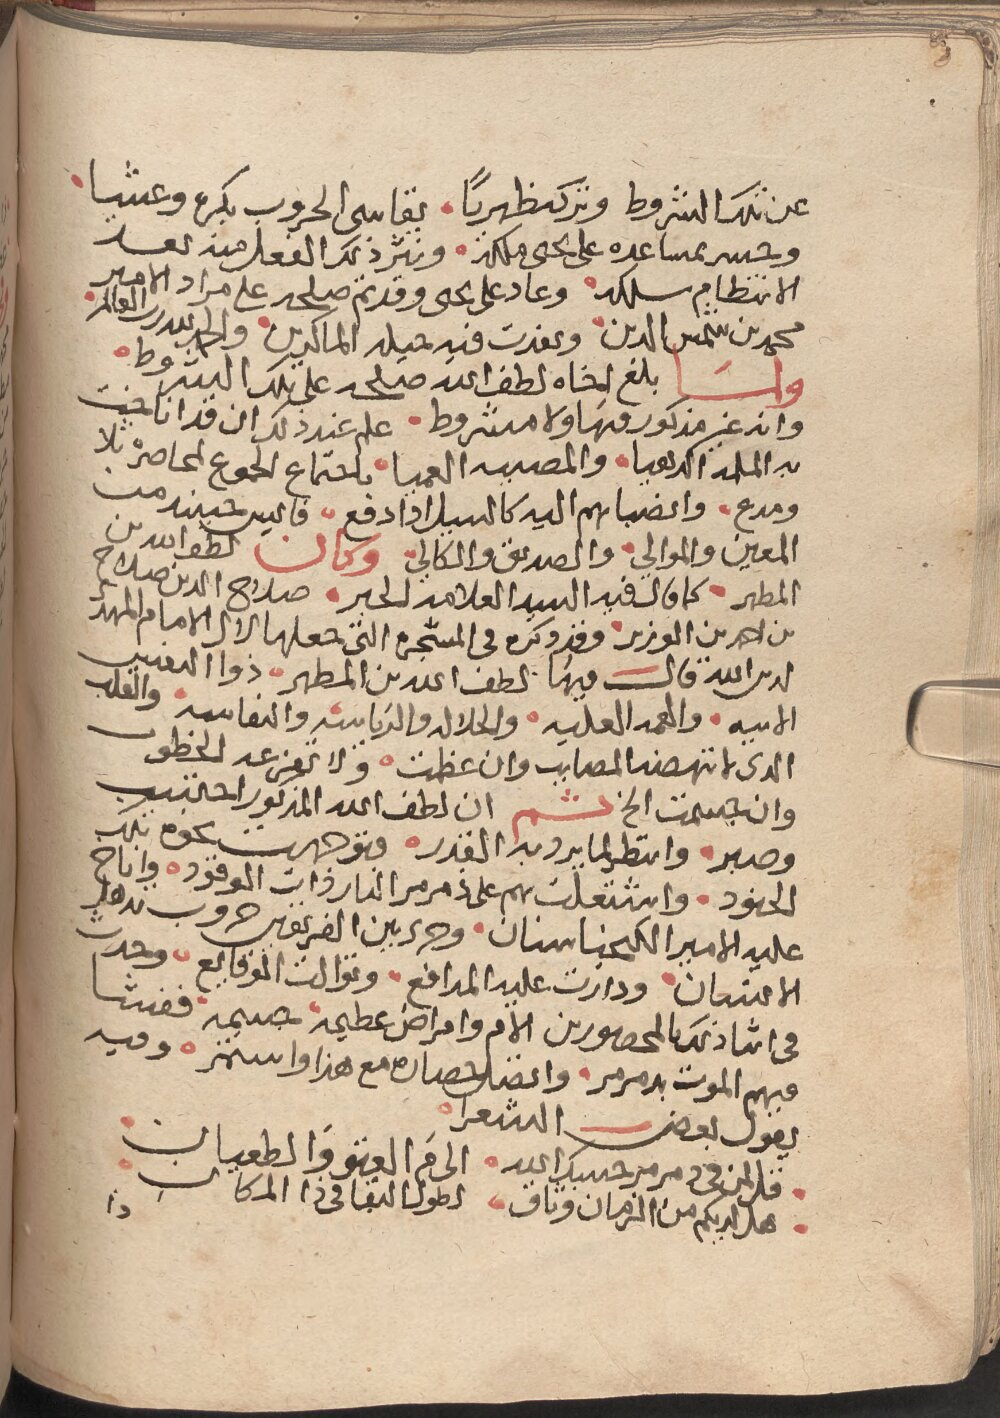 عن تلك الشروط وتركه ظهريًا • يقاسي الحروب بكره وعشيا •
وحسر بمساعده علي يحيى ملكه • ونثر ذلك الفعل منه بعد
الانتظام سلكه • وعاد علي يحيى وقد تم صلحه على مراد الامير
محمد بن شمس الدين • ونفذت فيه حيله الماكرين • والحمد لله رب العالمين •
ولما بلغ اخاه لطف الله صلحه على تلك الشروط •
وانه غير مذكور فيها ولا مشروط • علم عند ذلك ان قد اناخت
به الملمه الدهيا • والمصيبه العميا • باجتماع الجموع لمحاصرة ثلا
ومدع • وانصبابهم اليه كالسيل اذا دفع • فايس حينئذ من
المعين والموالي • والصديق والكالي • وكان لطف الله بن
المطهر • كما قال فيه السيد العلامه الحبر • صلاح الدين صلاح
بن احمد بن الوزير • وقد ذكره في المشجره التي جعلها لال الامام المهدي
لدين الله قال فيها لطف الله بن المطهر • ذوا النفس
الابيه • والهمه العليه • والجلاله والرياسه والنفاسه • والقلب
الذي لا تنهضه المصايب وان عظمت • ولا تفزعه الخطوب
وان جسمت الخ ثم ان لطف الله المذكور احتسب
وصبر • وانتظر لما يرد به القدر • فتوجهت نحوه تلك
الجنود • واشتعلت بهم على ذمرمر النار ذات الوقود • واناخ
عليه الامير الكيخيا سنان • وجرى بين الفريقين حروب تذهل
الاعيان • ودارت عليه المدافع • وتوالت الوقايع • وحدث
في اثنا ذلك بالمحصورين الام وامراض عظيمه • جسيمه • ففشا
فيهم الموت بذمرمر • واعضل حصاره مع هذا واستمر • وفيه
يقول بعض الشعرا •
• قل لمن في ذمرمر حسبك الله • الى كم العتو والطغيان •
• هل لديكم من الزمان وثاق • لطول البقا في ذا المكان •
ذا